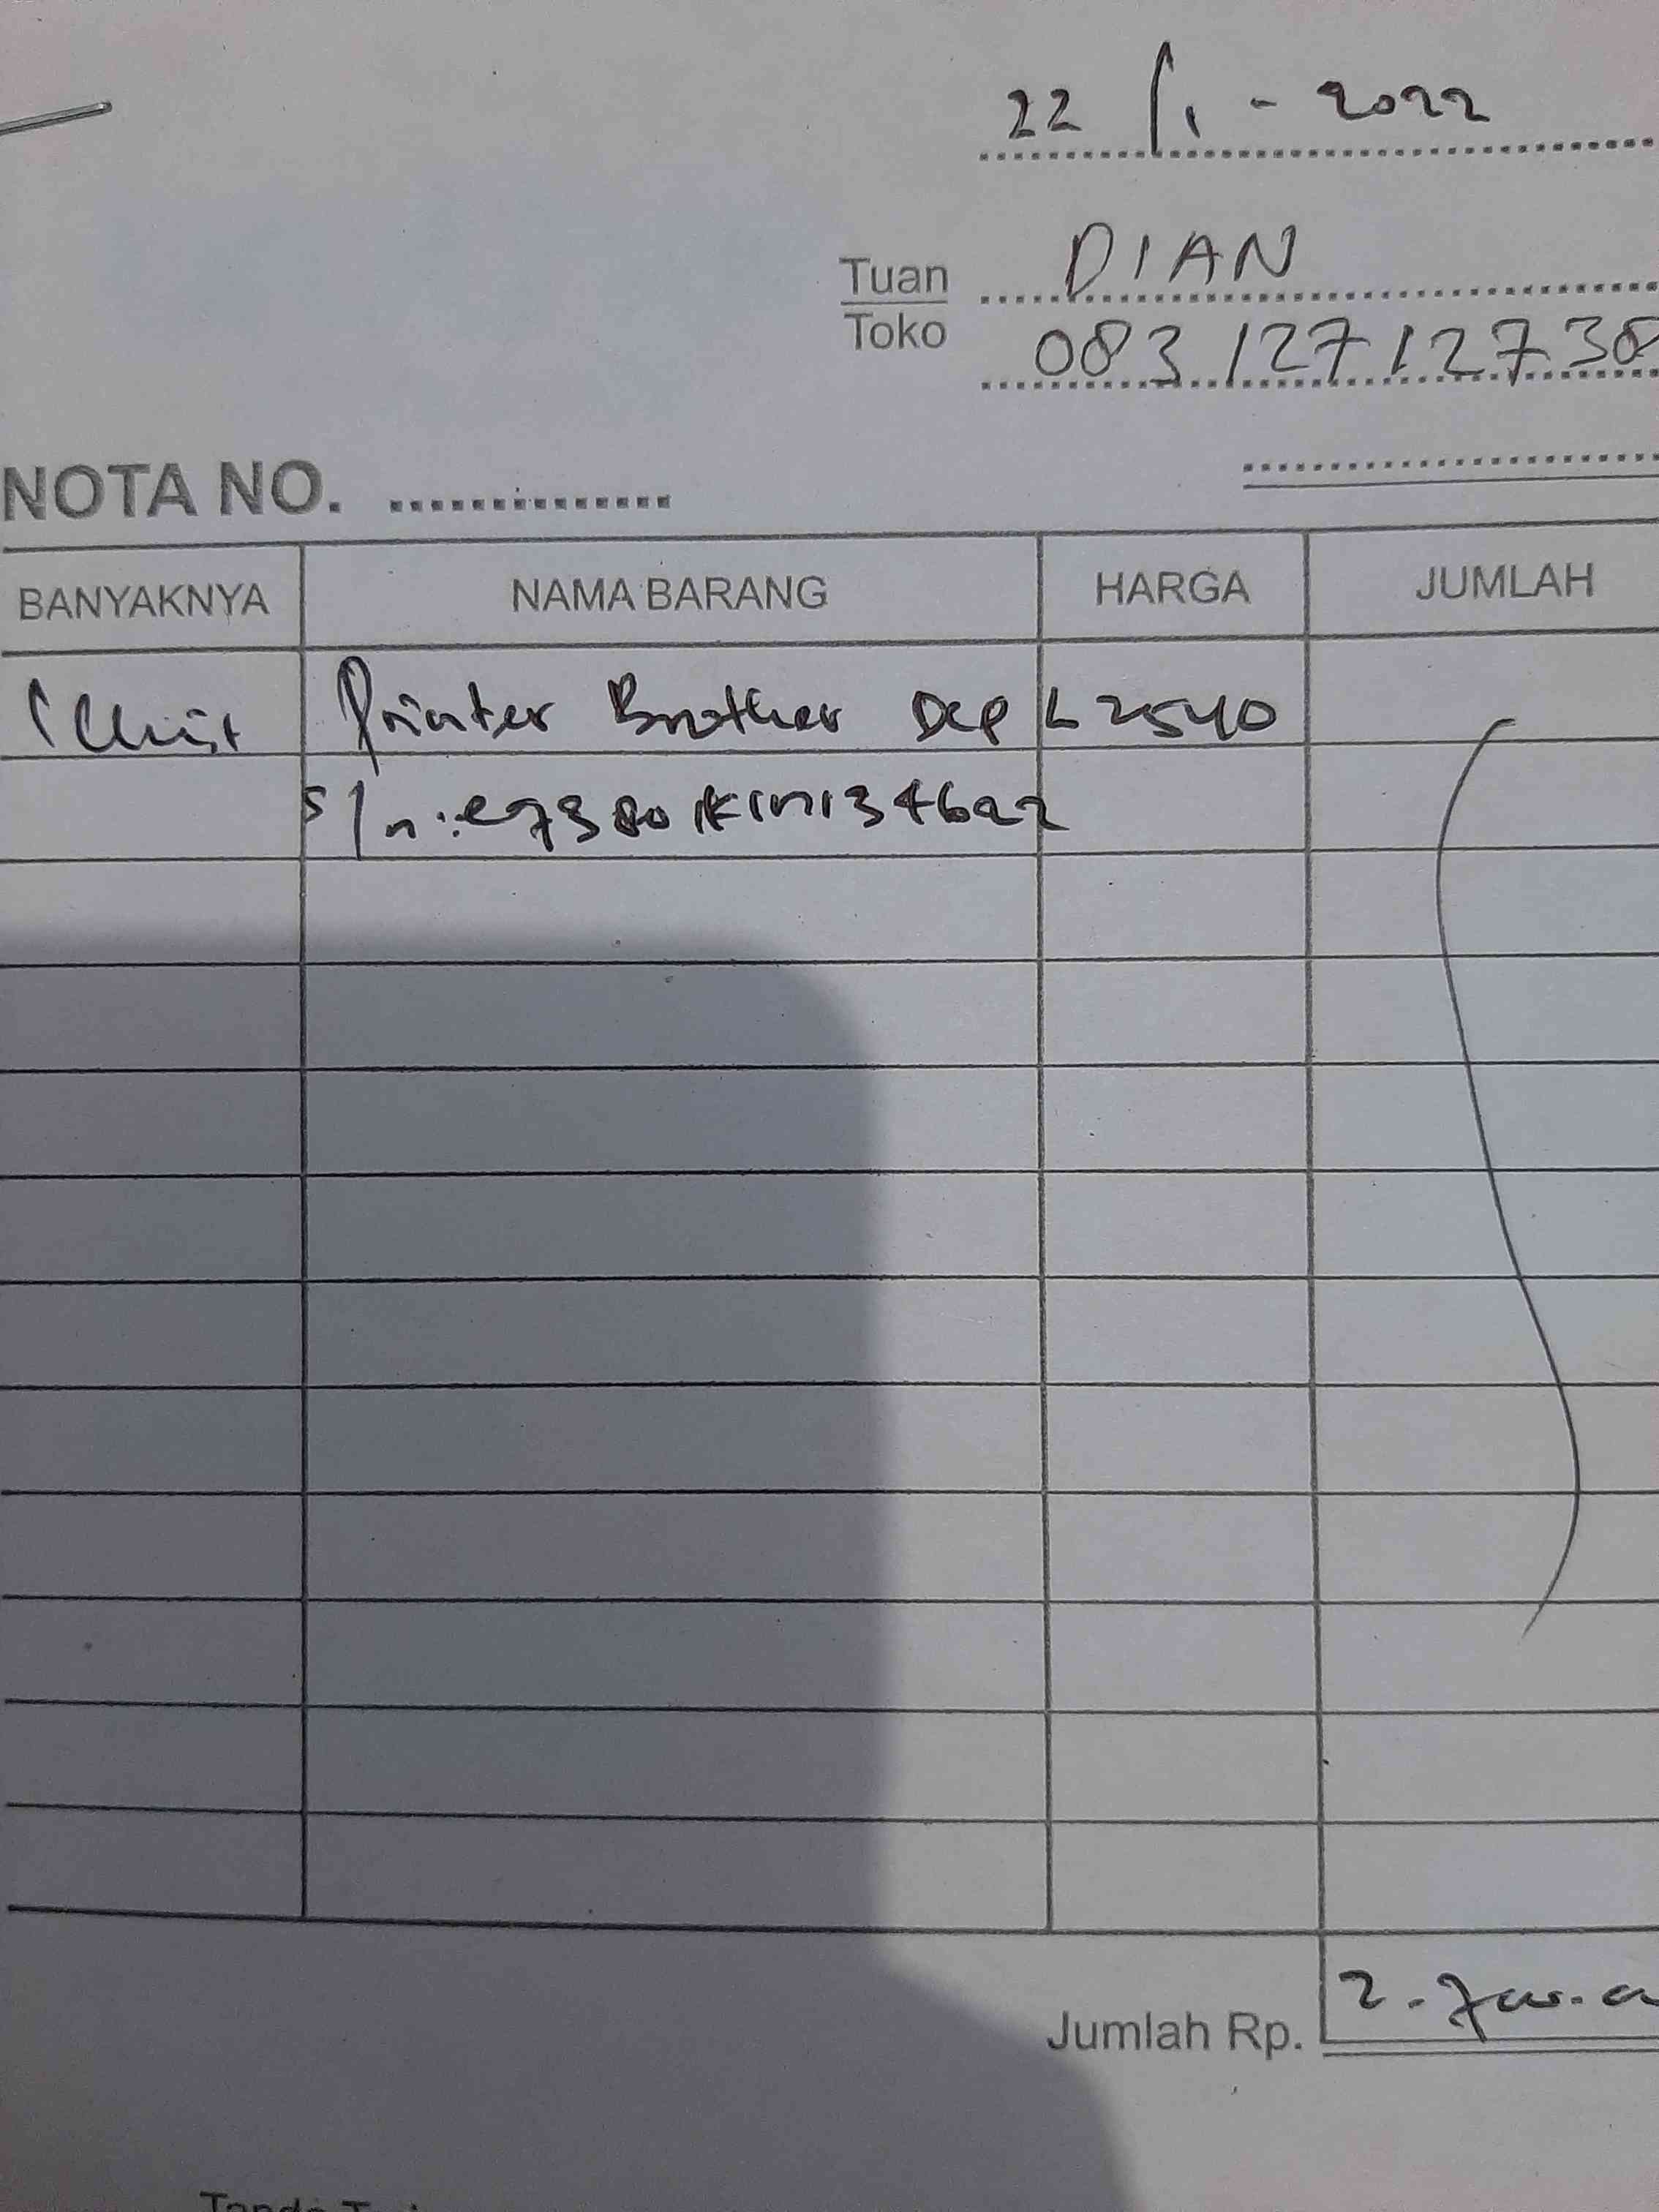 22/1-2022
Tuan DIAN
Toko 08312712738
NOTA NO. ..............
BANYAKNYA NAMA BARANG HARGA JUMLAH
1 Unit Printer Brother Dcp L2540
S/n:
Jumlah Rp. 2.700.0